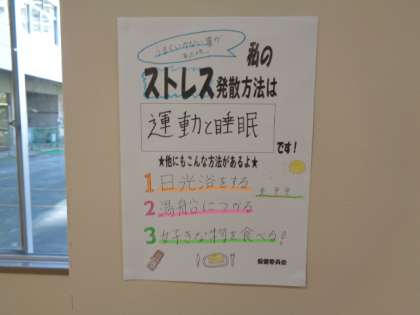 私の
ストレス発散方法は
運動と睡眠
です！
★他にもこんな方法があるよ★
1 日光浴をする
2 湯船につかる
3 好きな物を食べる！
保健委員会